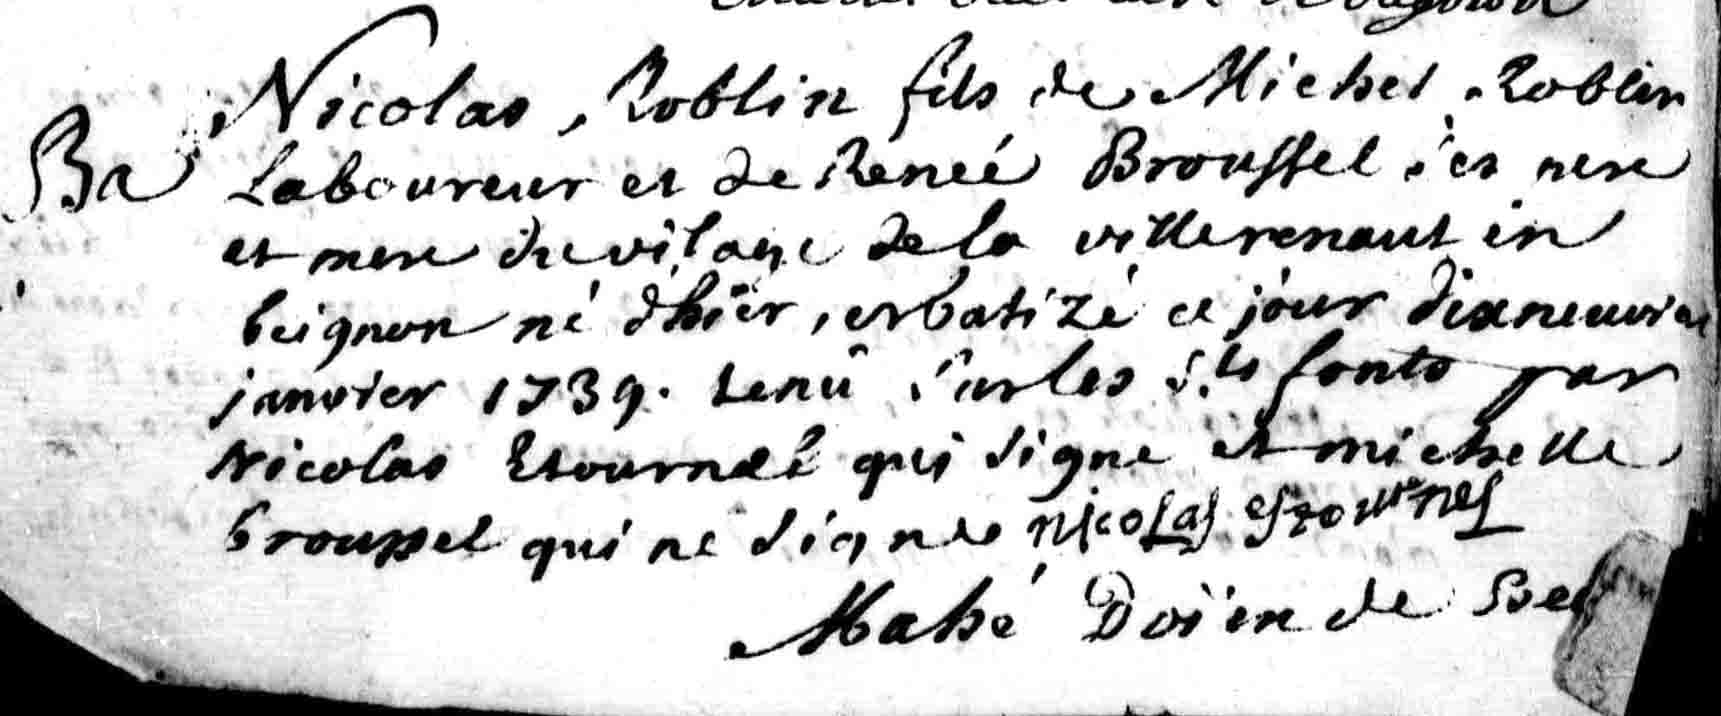 Nicolas Roblin fils de Michel Roblin
Ba Laboureur et de Reneé Broussel ses pere
et mere du vilage de la villerenaut en
beignon né d'hïer, et batizé ce jour dixneuvie
janvier 1739. tenû sur les Sts fonts par
Nicolas Etournel qui signe et michelle
broussel qui ne signe nicolas estournel
Mahé Doïen de